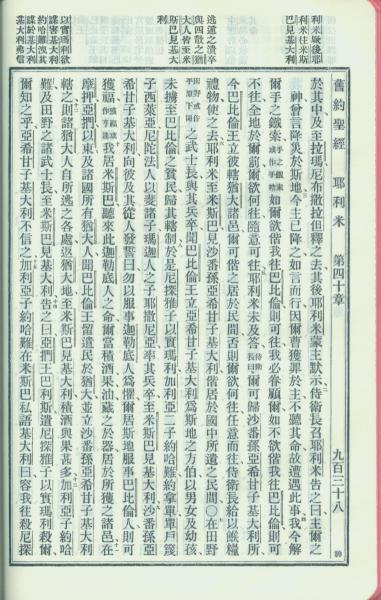 利米厥後耶
利米往米斯
巴見基大利
逃遁之潰卒
與四散之猶
大人皆至米
斯巴見基大
利
以實瑪利欲
謀害基大利
約哈難告其
謀於基大利
基大利弗信
舊約聖經 耶利米 第四十章 九百三十八
於其中及至拉瑪尼布撒拉但釋之去其後耶利米蒙主默示侍衛長召耶利米告之曰主爾之
神曾言降災於斯地今主已降之如言而行因爾曹獲罪於主不聽其命故遭遇此事我今解
爾手之鐵索手之鐵索或作手梏如爾欲偕我往巴比倫則可往我必眷顧爾如不欲偕我往巴比倫則可
不往全地於爾前爾欲何往隨意可往耶利米未及答侍衛長曰爾可歸沙番孫亞希甘子基大利所
今巴比倫王立彼轄猶大諸邑爾可偕之居於民間否則爾欲何往任意而往侍衛長給以餱糧
禮物使之去耶利米至米斯巴見沙番孫亞希甘子基大利偕居於國中所遺之民間〇在田野
田野或作平原下同之武士長與其兵卒聞巴比倫王立亞希甘子基大利爲斯地之方伯以男女及幼孩
未擄至巴比倫之貧民歸其轄制於是尼探雅子以實瑪利加利亞二子約哈難約拿單單戶篾
子西萊亞尼陀法人以斐諸子瑪迦人之子耶撒尼亞率其兵卒至米斯巴見基大利沙番孫亞
希甘子基大利向彼及其從人發誓曰勿以服事迦勒底人爲懼居斯地服事巴比倫人則可
獲福我居米斯巴聽來此迦勒底人之命爾當積酒果油藏之於器居於所獲之諸邑在
摩押亞捫以東及諸國所有猶大人聞巴比倫王留遺民於猶大並立沙番孫亞希甘子基大利
轄之則諸猶大人自所逃之各處返猶大地至米斯巴見基大利積酒與果甚多加利亞子約哈
難及田野之諸武士長至米斯巴見基大利告之曰亞捫王巴利斯遣尼探雅子以實瑪利殺爾
爾知之乎亞希甘子基大利不信之加利亞子約哈難在米斯巴私語基大利曰容我往殺尼探